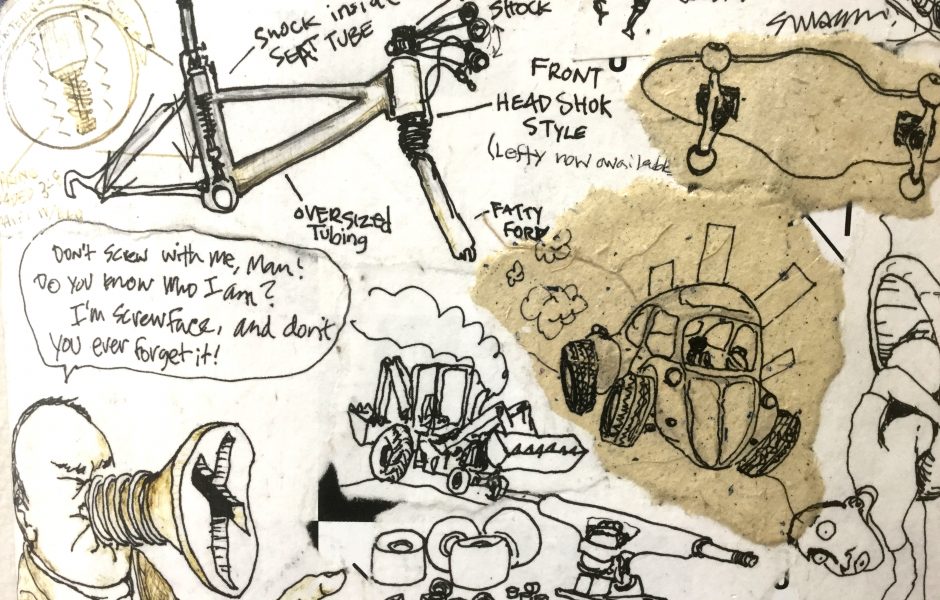 SHOCK
Shock inside
SEAT TUBE
FRONT
HEADSHOK
STYLE
(Lefty now available
OVERSIZED
Tubing
FATTY
FORK
Don't screw with me, Man!
Do you know who I am?
I'm Screwface, and don't
you ever forget it!